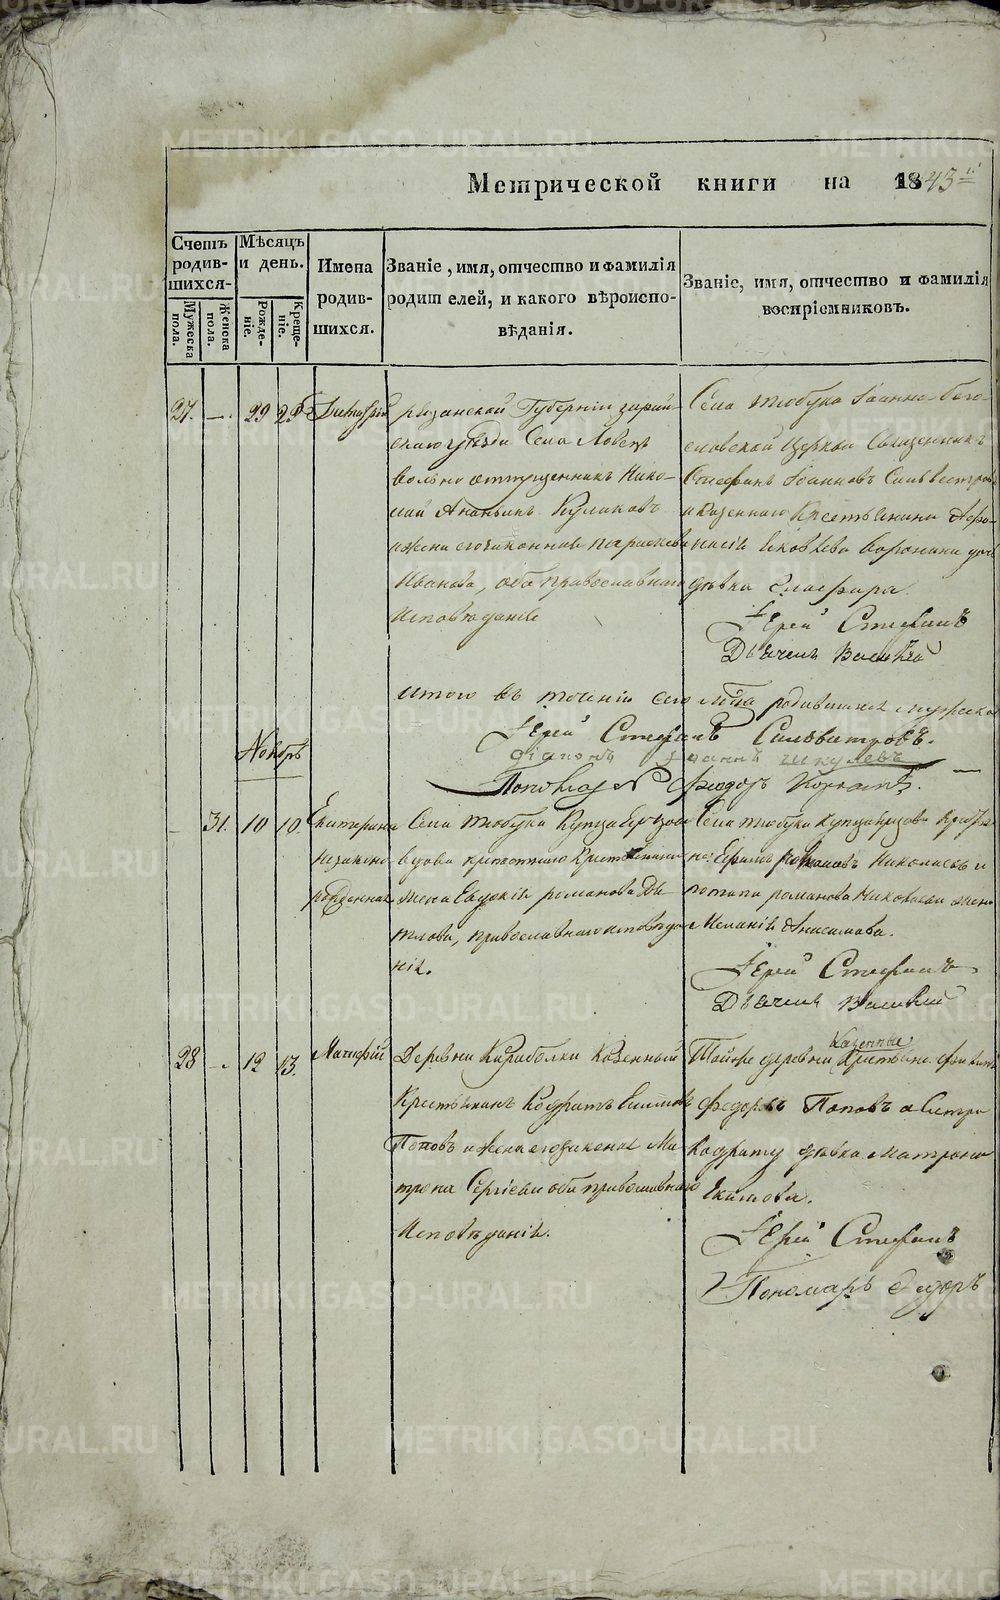 Метрической книги на 1843й
Счетъ родив-
шихся.
Мужеска пола.
Женска пола.
Мѣсяцъ
и день.
Рожде-
ніе.
Креще-
ніе.
Имена
родив-
шихся.
Званіе, имя, отчество и фамилія
родителей, и какого вѣроиспо-
вѣданія.
Званіе, имя, отчество и фамилія
воспріемниковъ.
27. — 29 29
Рязанской Губерніи Зарай-
скаго уѣзда Села Ловецъ
вольно отпущенникъ Нико-
лай Ананьинъ Куликовъ
и жена его законная Параскева
Иванова, оба православнаго
исповѣданіе
Села Тюбука Іоанно-Бого-
словской Церкви Священникъ
Стефанъ Іоанновъ Сильвестров
и казеннаго Крестьянина Афо-
насія Яковлева Воронина дочь
дѣвка Глафира.
Іерей Стефанъ
Дьячекъ Василій
Итого въ теченіи сего м-ца родившихся мужеска
Іерей Стефанъ Сильвестровъ.
Діаконъ Іоаннъ
Пономарь Феодоръ
Ноябрь
— 31. 10 10. Екатерина
незаконо-
рожденная
Села Тюбука
вдова крепостнаго Крестьянина
жена Евдокія Романова
православнаго исповѣда-
нія.
Села Тюбука
Ефимъ Романовъ Николаевъ и
Потапа Романова Николаева жена
Меланія Анисимова.
Іерей Стефанъ
Дьячекъ Василій
28 — 12 13. Матфій
Деревни Караболки Казенный
Крестьянинъ Кодратъ
Поповъ и жена его законная Ма-
трона Сергіева оба православнаго
Исповѣданія.
Тойже деревни Казенные Крестьяне
Федоровъ Поповъ и Сестра
Кодрату дѣвка Матрона
Екимова.
Іерей Стефанъ
Пономарь Федоръ
METRIKI.GASO-URAL.RU